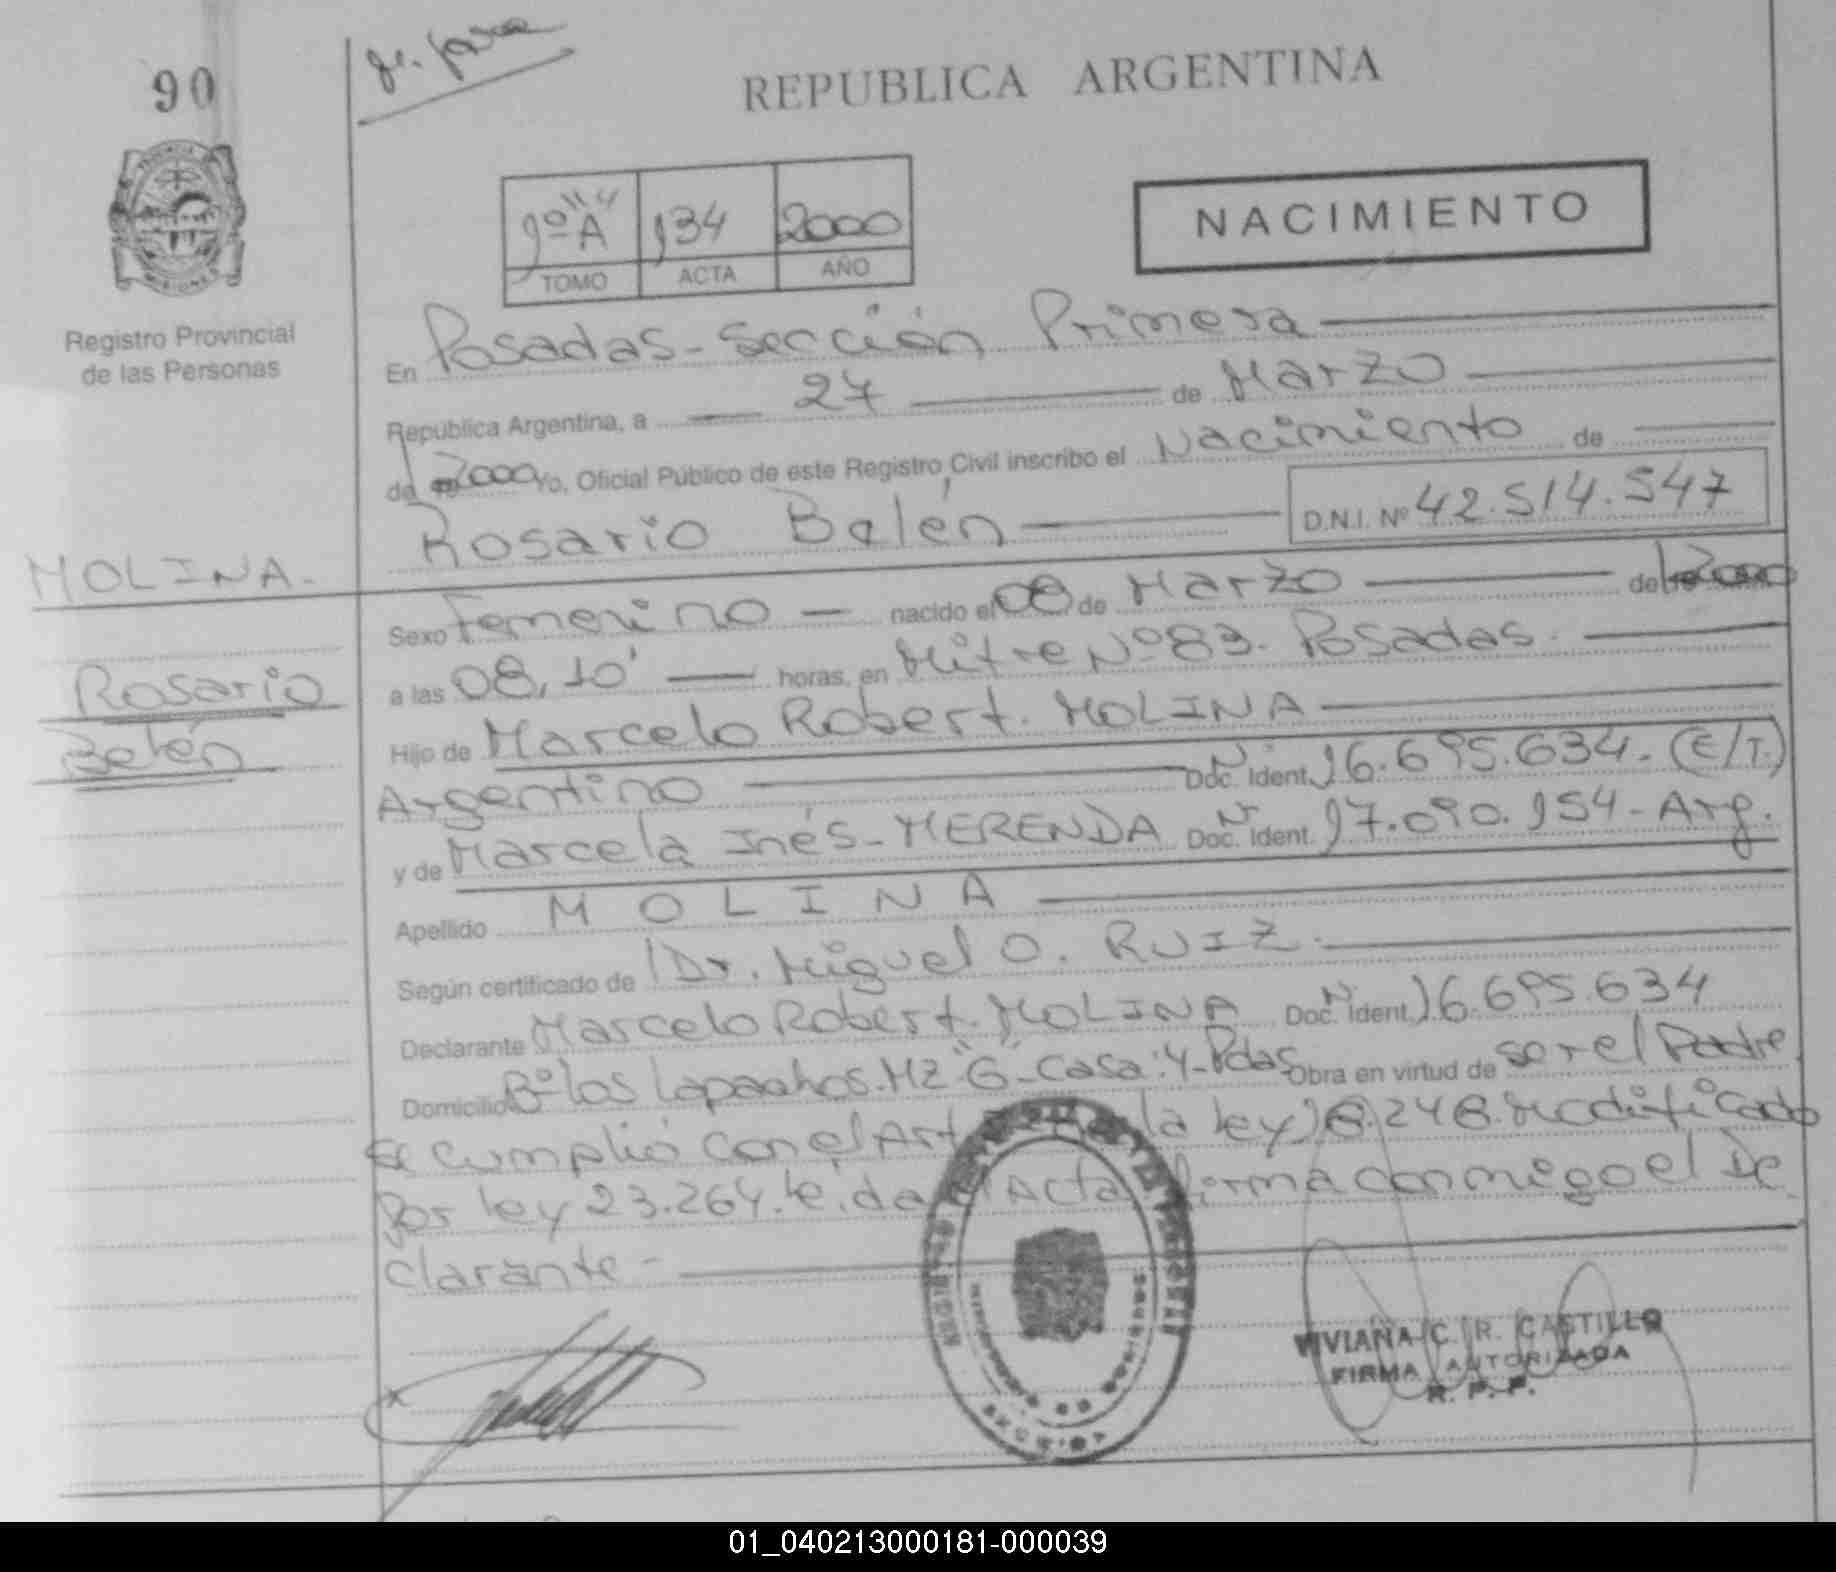 90
REPUBLICA ARGENTINA
1º "A" 134 2000
TOMO ACTA AÑO
NACIMIENTO
Registro Provincial
de las Personas
En Posadas - Sección Primera
República Argentina, a 27 de Marzo
de 2000 Yo, Oficial Público de este Registro Civil inscribo el Nacimiento de
Rosario Belén D.N.I. Nº 42.514.547
MOLINA.
Rosario
Belén
Sexo Femenino nacido el 08 de Marzo de 2000
a las 08,10' horas, en Mitre Nº 83. Posadas.
Hijo de Marcelo Robert. MOLINA
Argentino Doc. Ident. 16.695.634. (E/T.)
y de Marcela Inés - MERENDA Doc. Ident. 17.090.154 - Arg.
Apellido MOLINA
Según certificado de Dr. Miguel O. RUIZ.
Declarante Marcelo Robert. MOLINA Doc. Ident. 16.695.634
Domicilio Bº los Lapachos. MZ "G" - Casa: 4 - Pdas Obra en virtud de ser el Padre
Se cumplió con el Art la ley 18.248. modificado
Por ley 23.264. Acta firma conmigo el De
clarante -
VIVIANA C. R. CASTILLO
FIRMA AUTORIZADA
R. P. P.
01_040213000181-000039